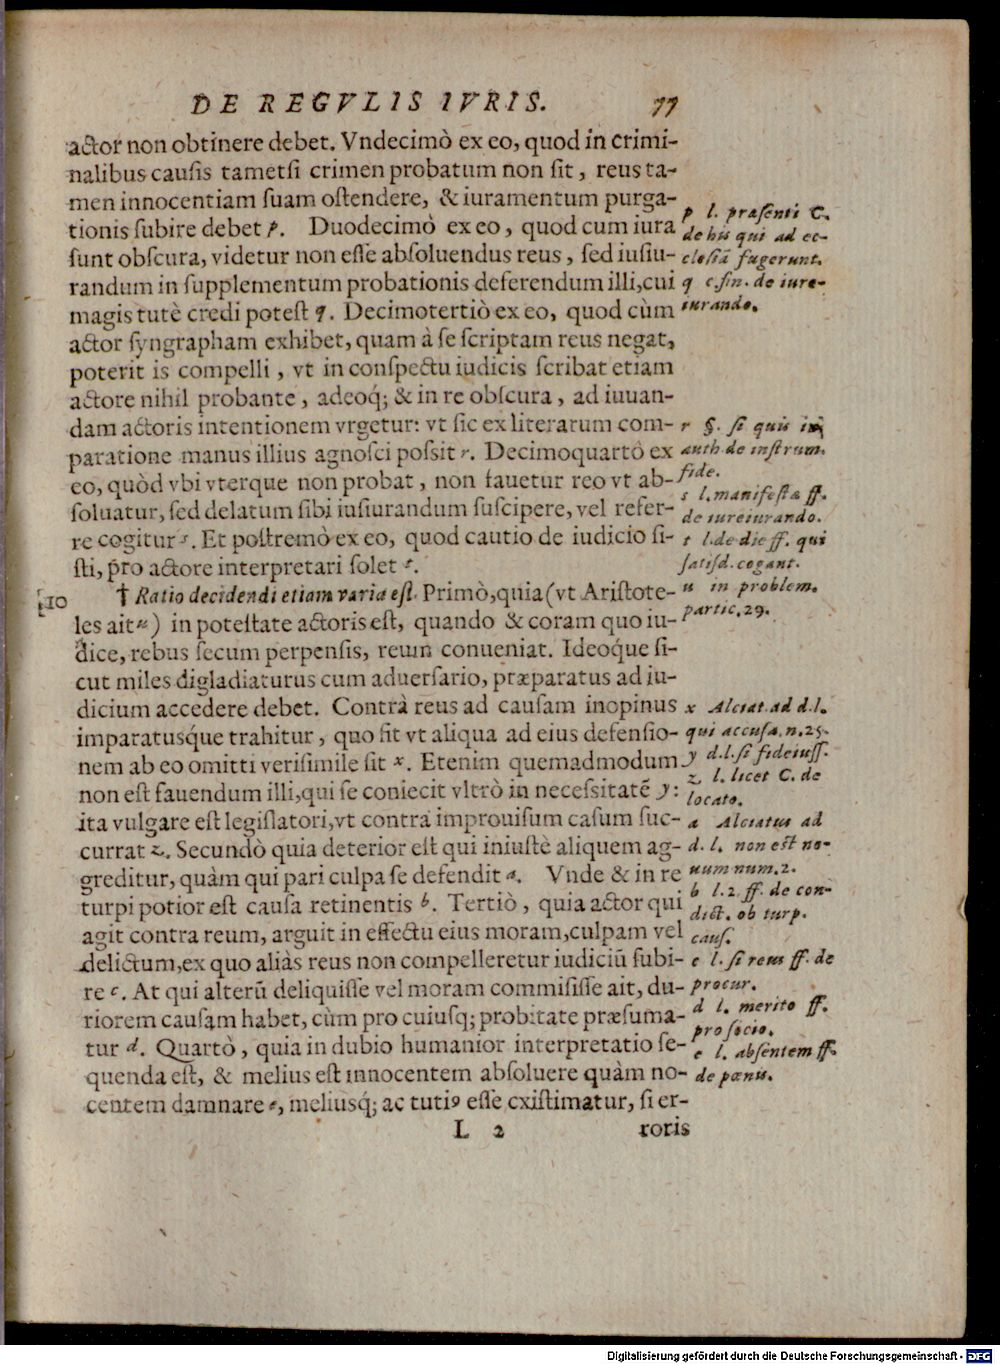 DE REGVLIS IVRIS. 77
actor non obtinere debet. Vndecimò ex eo, quod in crimi-
nalibus causis tametsi crimen probatum non sit, reus ta-
men innocentiam suam ostendere, & iuramentum purga-
tionis subire debet p. Duodecimò ex eo, quod cum iura
sunt obscura, videtur non esse absoluendus reus, sed iusiu-
randum in supplementum probationis deferendum illi, cui
magis tutè credi potest q. Decimotertiò ex eo, quod cùm
actor syngrapham exhibet, quam à se scriptam reus negat,
poterit is compelli, vt in conspectu iudicis scribat etiam
actore nihil probante, adeoq́; & in re obscura, ad iuuan-
dam actoris intentionem vrgetur: vt sic ex literarum com-
paratione manus illius agnosci possit r. Decimoquartò ex
eo, quòd vbi vterque non probat, non fauetur reo vt ab-
soluatur, sed delatum sibi iusiurandum suscipere, vel refer-
re cogitur s. Et postremò ex eo, quod cautio de iudicio si-
sti, pro actore interpretari solet t.
p l. præsenti C.
de his qui ad ec-
clesiã fugerunt.
q c. fin. de iure-
iurando.
r §. si quis in
auth. de instrum.
fide.
s l. manifestæ ff.
de iureiurando.
t l. de die ff. qui
satisd. cogant.
110
† Ratio decidendi etiam varia est. Primò, quia (vt Aristote-
les ait u) in potestate actoris est, quando & coram quo iu-
dice, rebus secum perpensis, reum conueniat. Ideoq́ue si-
cut miles digladiaturus cum aduersario, præparatus ad iu-
dicium accedere debet. Contrà reus ad causam inopinus
imparatusq́ue trahitur, quo fit vt aliqua ad eius defensio-
nem ab eo omitti verisimile sit x. Etenim quemadmodum
non est fauendum illi, qui se coniecit vltrò in necessitatẽ y:
ita vulgare est legislatori, vt contra improuisum casum suc-
currat z. Secundò quia deterior est qui iniustè aliquem ag-
greditur, quàm qui pari culpa se defendit a. Vnde & in re
turpi potior est causa retinentis b. Tertiò, quia actor qui
agit contra reum, arguit in effectu eius moram, culpam vel
delictum, ex quo aliàs reus non compelleretur iudiciũ subi-
re c. At qui alterũ deliquisse vel moram commisisse ait, du-
riorem causam habet, cùm pro cuiusq; probitate præsuma-
tur d. Quartò, quia in dubio humanior interpretatio se-
quenda est, & melius est innocentem absoluere quàm no-
centem damnare e, meliusq́; ac tutiꝰ esse existimatur, si er-
u in problem.
partic. 29.
x Alciat. ad d. l.
qui accusa. n. 25.
y d. l. si fideiuss.
z l. licet C. de
locato.
a Alciatus ad
d. l. non est no-
uum num. 2.
b l. 2. ff. de con-
dict. ob turp.
caus.
c l. si reus ff. de
procur.
d l. merito ff.
pro socio.
e l. absentem ff.
de pœnis.
L 2 roris
Digitalisierung gefördert durch die Deutsche Forschungsgemeinschaft - DFG